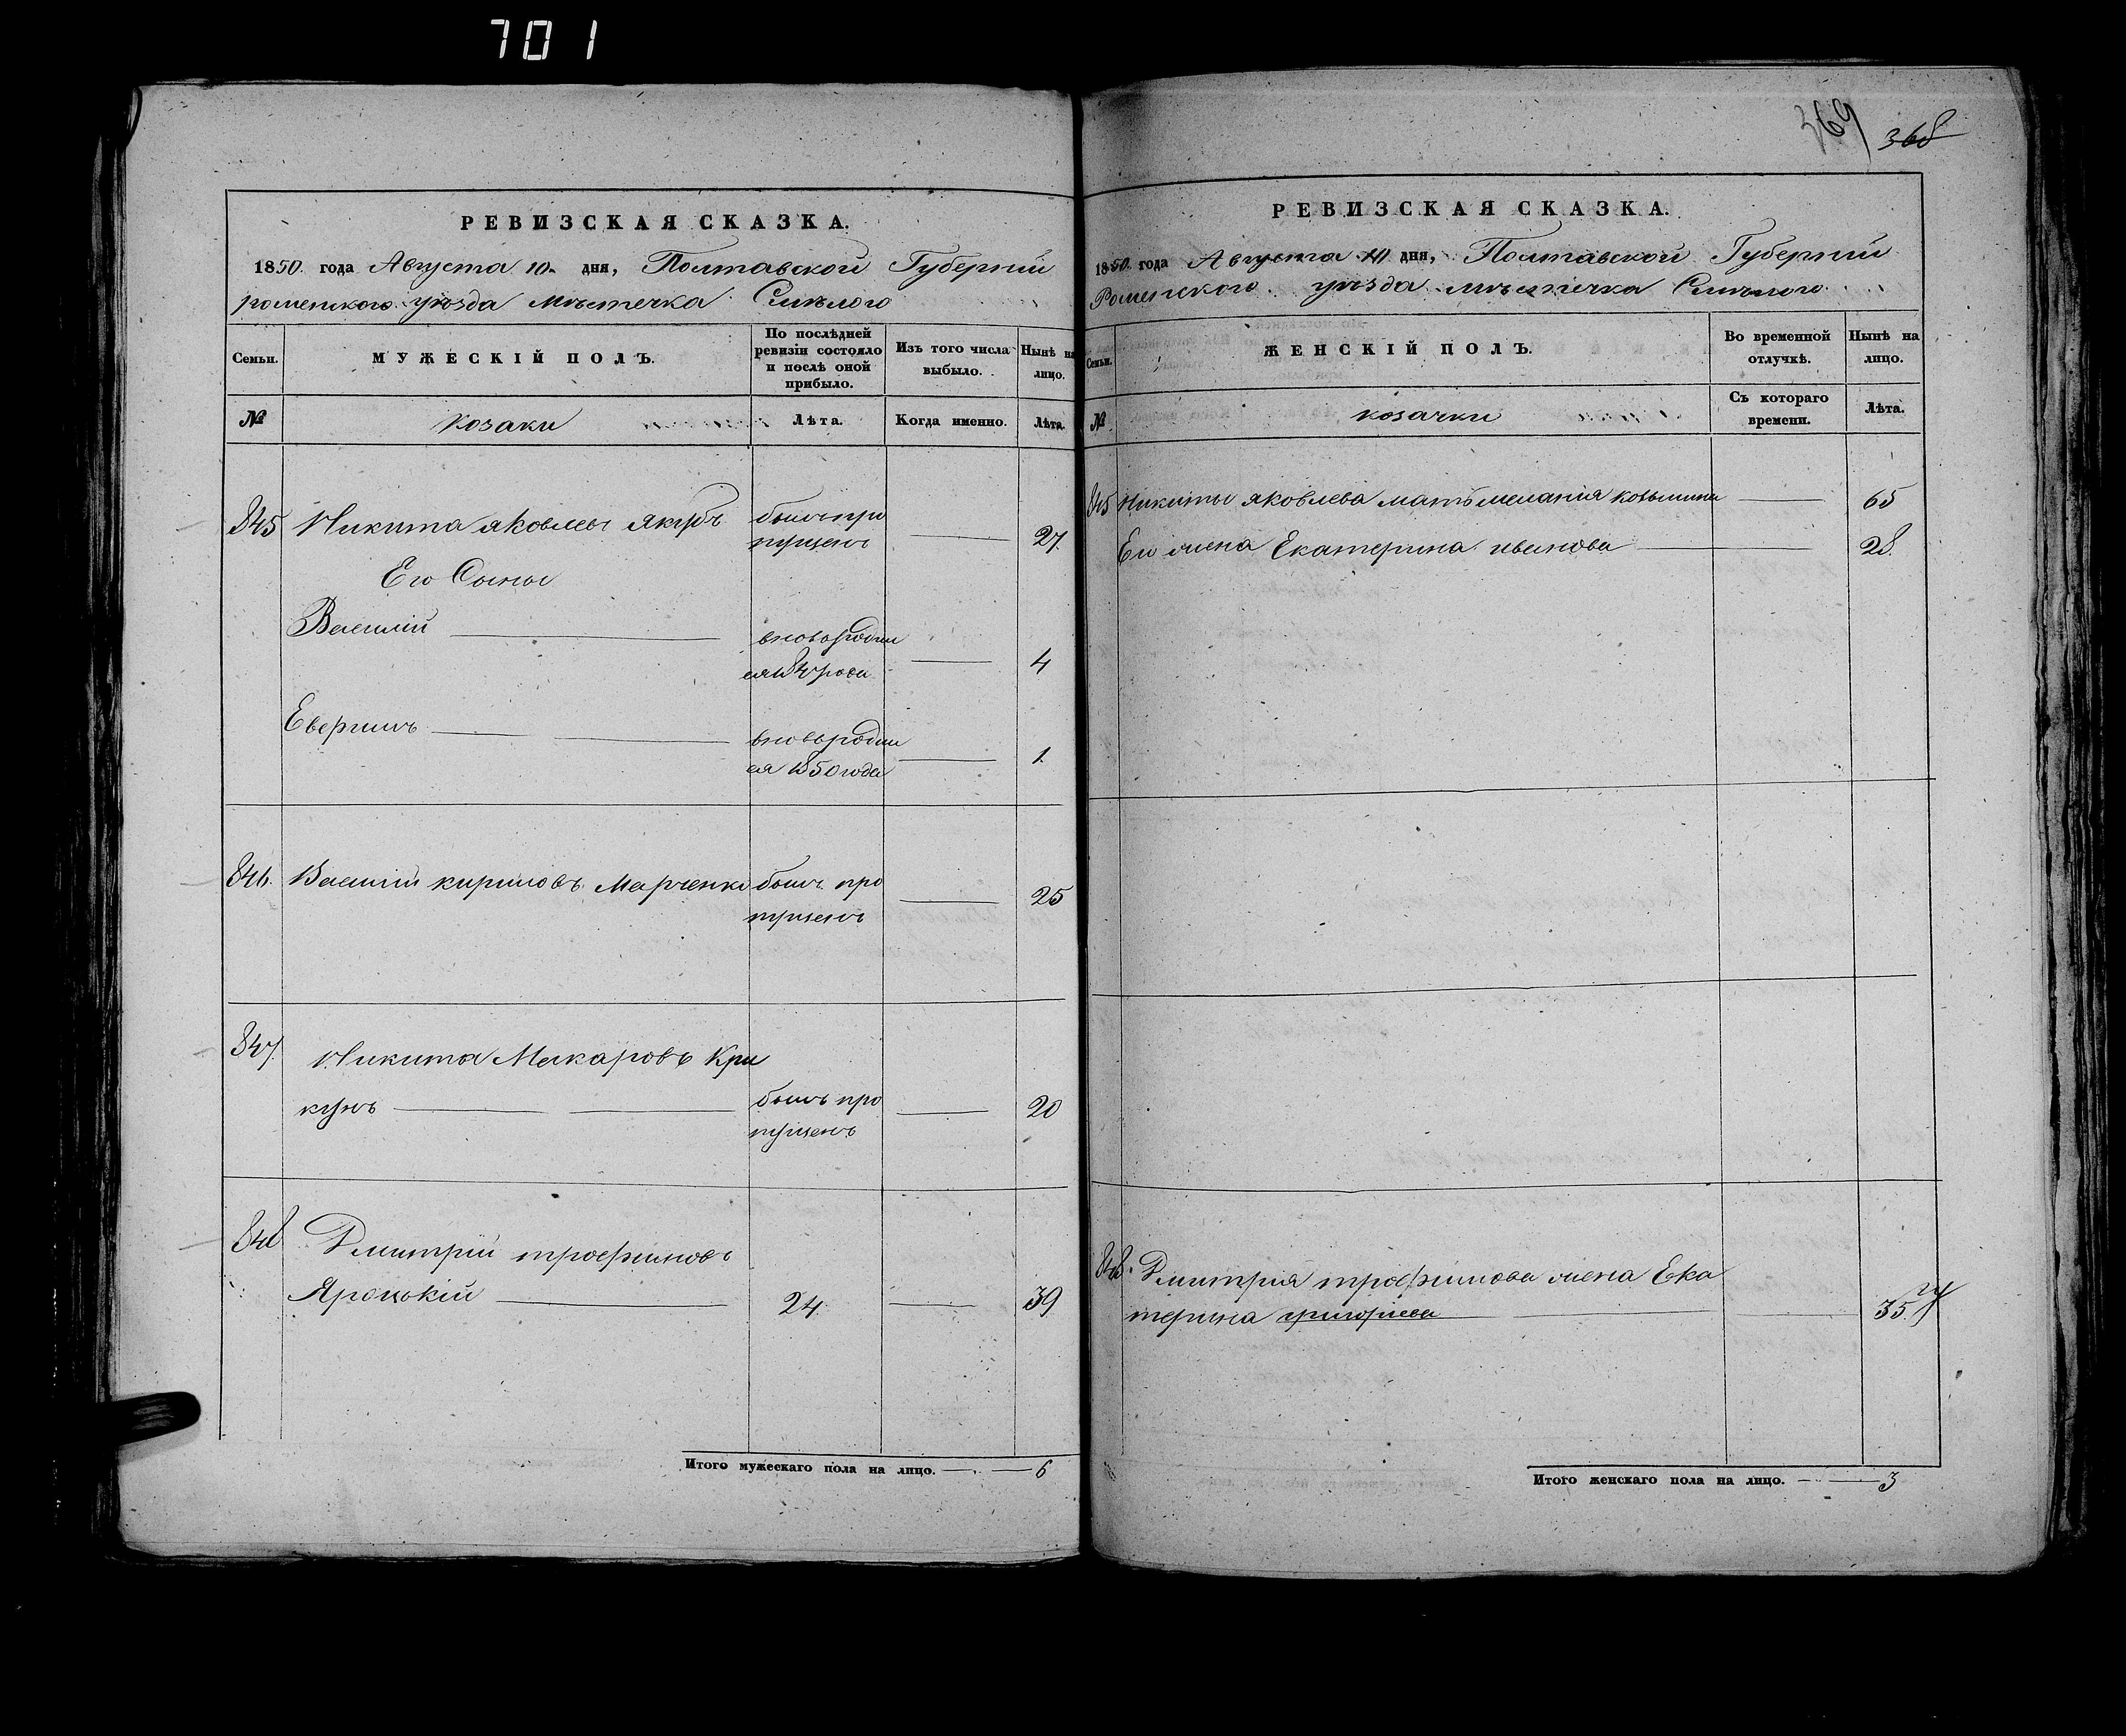 701
369 368
РЕВИЗСКАЯ СКАЗКА.
1850. года Августа 10. дня, Полтавской Губерніи
роменского уѣзда мѣстечка Смѣлого
Семьи.
МУЖЕСКІЙ ПОЛЪ.
По послѣдней ревизіи состояло и послѣ оной прибыло.
Изъ того числа выбыло.
Нынѣ на лицо.
№
козаки
Лѣта.
Когда именно.
Лѣта.
845 Никита яковлевъ былъ про
пущенъ 27.
Его Сыны
Василій вновь родил
ся года 4
вновь родил
ся 1850 года 1.
846. Василій кириловъ Марченко былъ про
пущенъ 25
847. Никита Макаровъ Кри
кунъ былъ про 20
пущенъ
848 Дмитрій трофимовъ
Яроцькій 24. 39
Итого мужескаго пола на лицо. 6
РЕВИЗСКАЯ СКАЗКА.
1850. года Августа 10 дня, Полтавской Губерніи
Роменского уѣзда мѣстечка Смѣлого
Семьи.
ЖЕНСКІЙ ПОЛЪ.
Во временной отлучкѣ.
Нынѣ на лицо.
№
козачки
Съ котораго времени.
Лѣта.
845 Никиты яковлева мать меланія козьмина 65
Его жена Екатерина иванова 28.
848. Дмитрия трофимова жена Ека
терина григориева 35.
Итого женскаго пола на лицо. 3